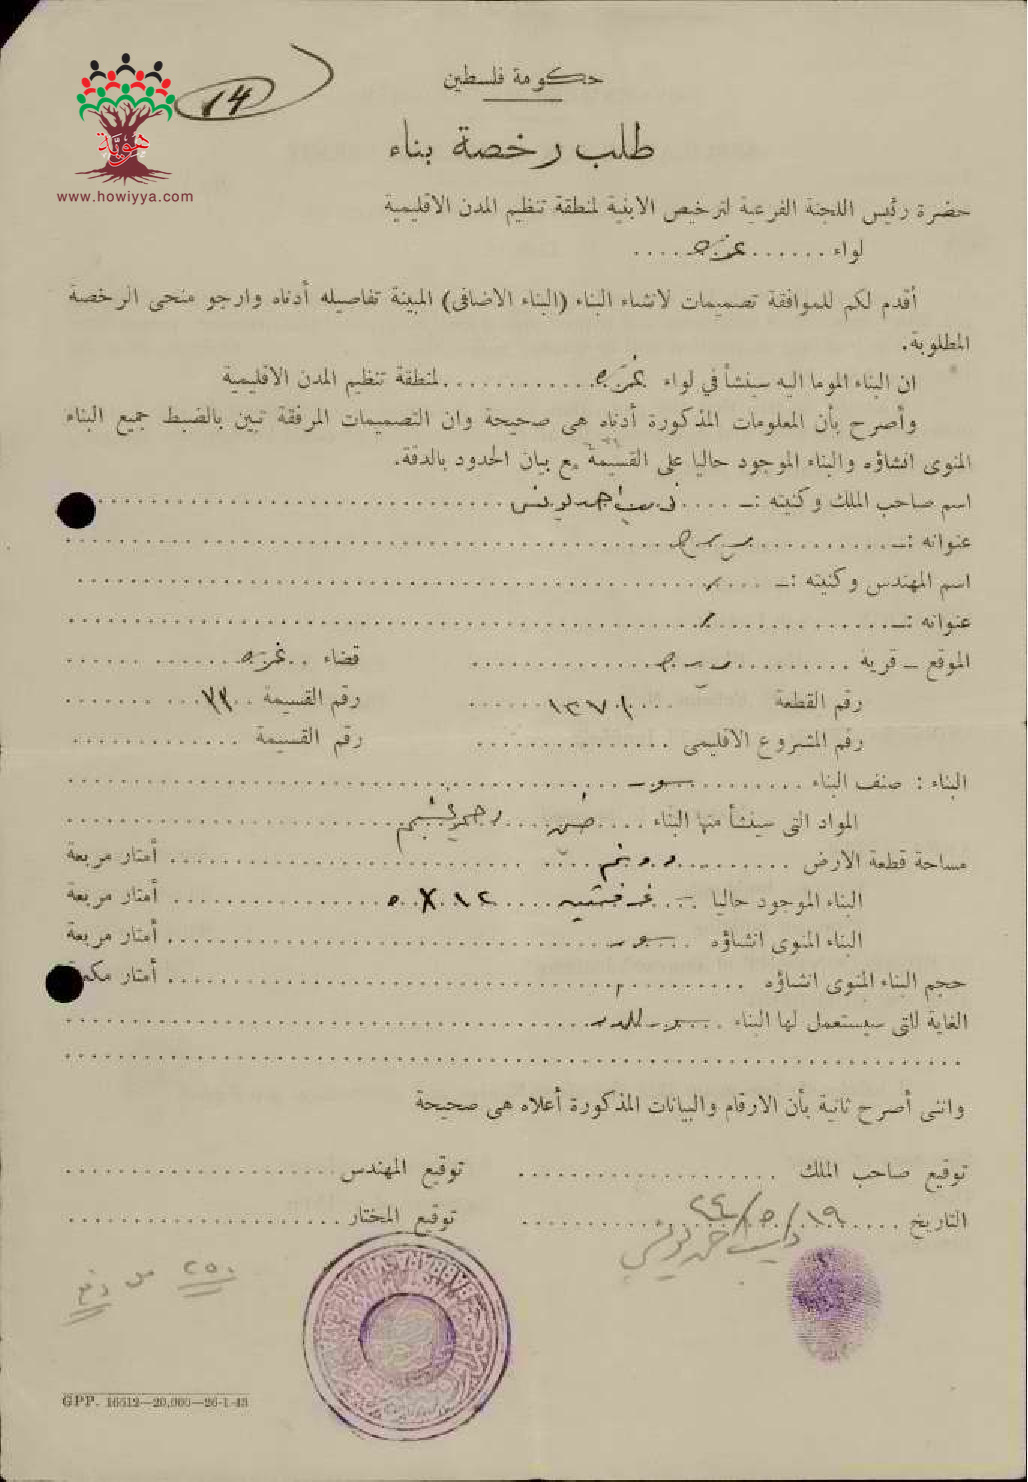 هويّة
www.howiyya.com
١٤
حكومة فلسطين
طلب رخصة بناء
حضرة رئيس اللجنة الفرعية لترخيص الابنية لمنطقة تنظيم المدن الاقليمية
لواء ....... غزه .....
أقدم لكم للموافقة تصميمات لانشاء البناء (البناء الاضافى) المبينة تفاصيله أدناه وارجو منحى الرخصة
المطلوبة.
ان البناء الموما اليه سينشأ في لواء غزه ............ لمنطقة تنظيم المدن الاقليمية
وأصرح بأن المعلومات المذكورة أدناه هى صحيحة وان التصميمات المرفقة تبين بالضبط جميع البناء
المنوى انشاؤه والبناء الموجود حاليا على القسيمة مع بيان الحدود بالدقة.
اسم صاحب الملك وكنيته :ــ .... احمد يونس
عنوانه :ــ
اسم المهندس وكنيته :ــ
عنوانه :ــ
الموقع ــ قرية ......... قضاء .. غزه ......
رقم القطعة .... رقم القسيمة ..
رقم المشروع الاقليمى ............... رقم القسيمة .............
البناء : صنف البناء ......... سور
المواد التى سينشأ منها البناء ....
مساحة قطعة الارض ......... أمتار مربعة
البناء الموجود حاليا ــ .. غرفتين .... ١٢ X ٥ ............ أمتار مربعة
البناء المنوى انشاؤه .. سور ............ أمتار مربعة
حجم البناء المنوى انشاؤه ............ أمتار مكعبة
الغاية للتى سيستعمل لها البناء ... سور
واننى أصرح ثانية بأن الارقام والبيانات المذكورة أعلاه هى صحيحة
توقيع صاحب الملك .................... توقيع المهندس ....................
التاريخ .... ١٩/٥/٤٤ توقيع المختار ....................
احمد يونس
٢٥٠ مل دفع
GPP. 16512—20,000—26-1-43